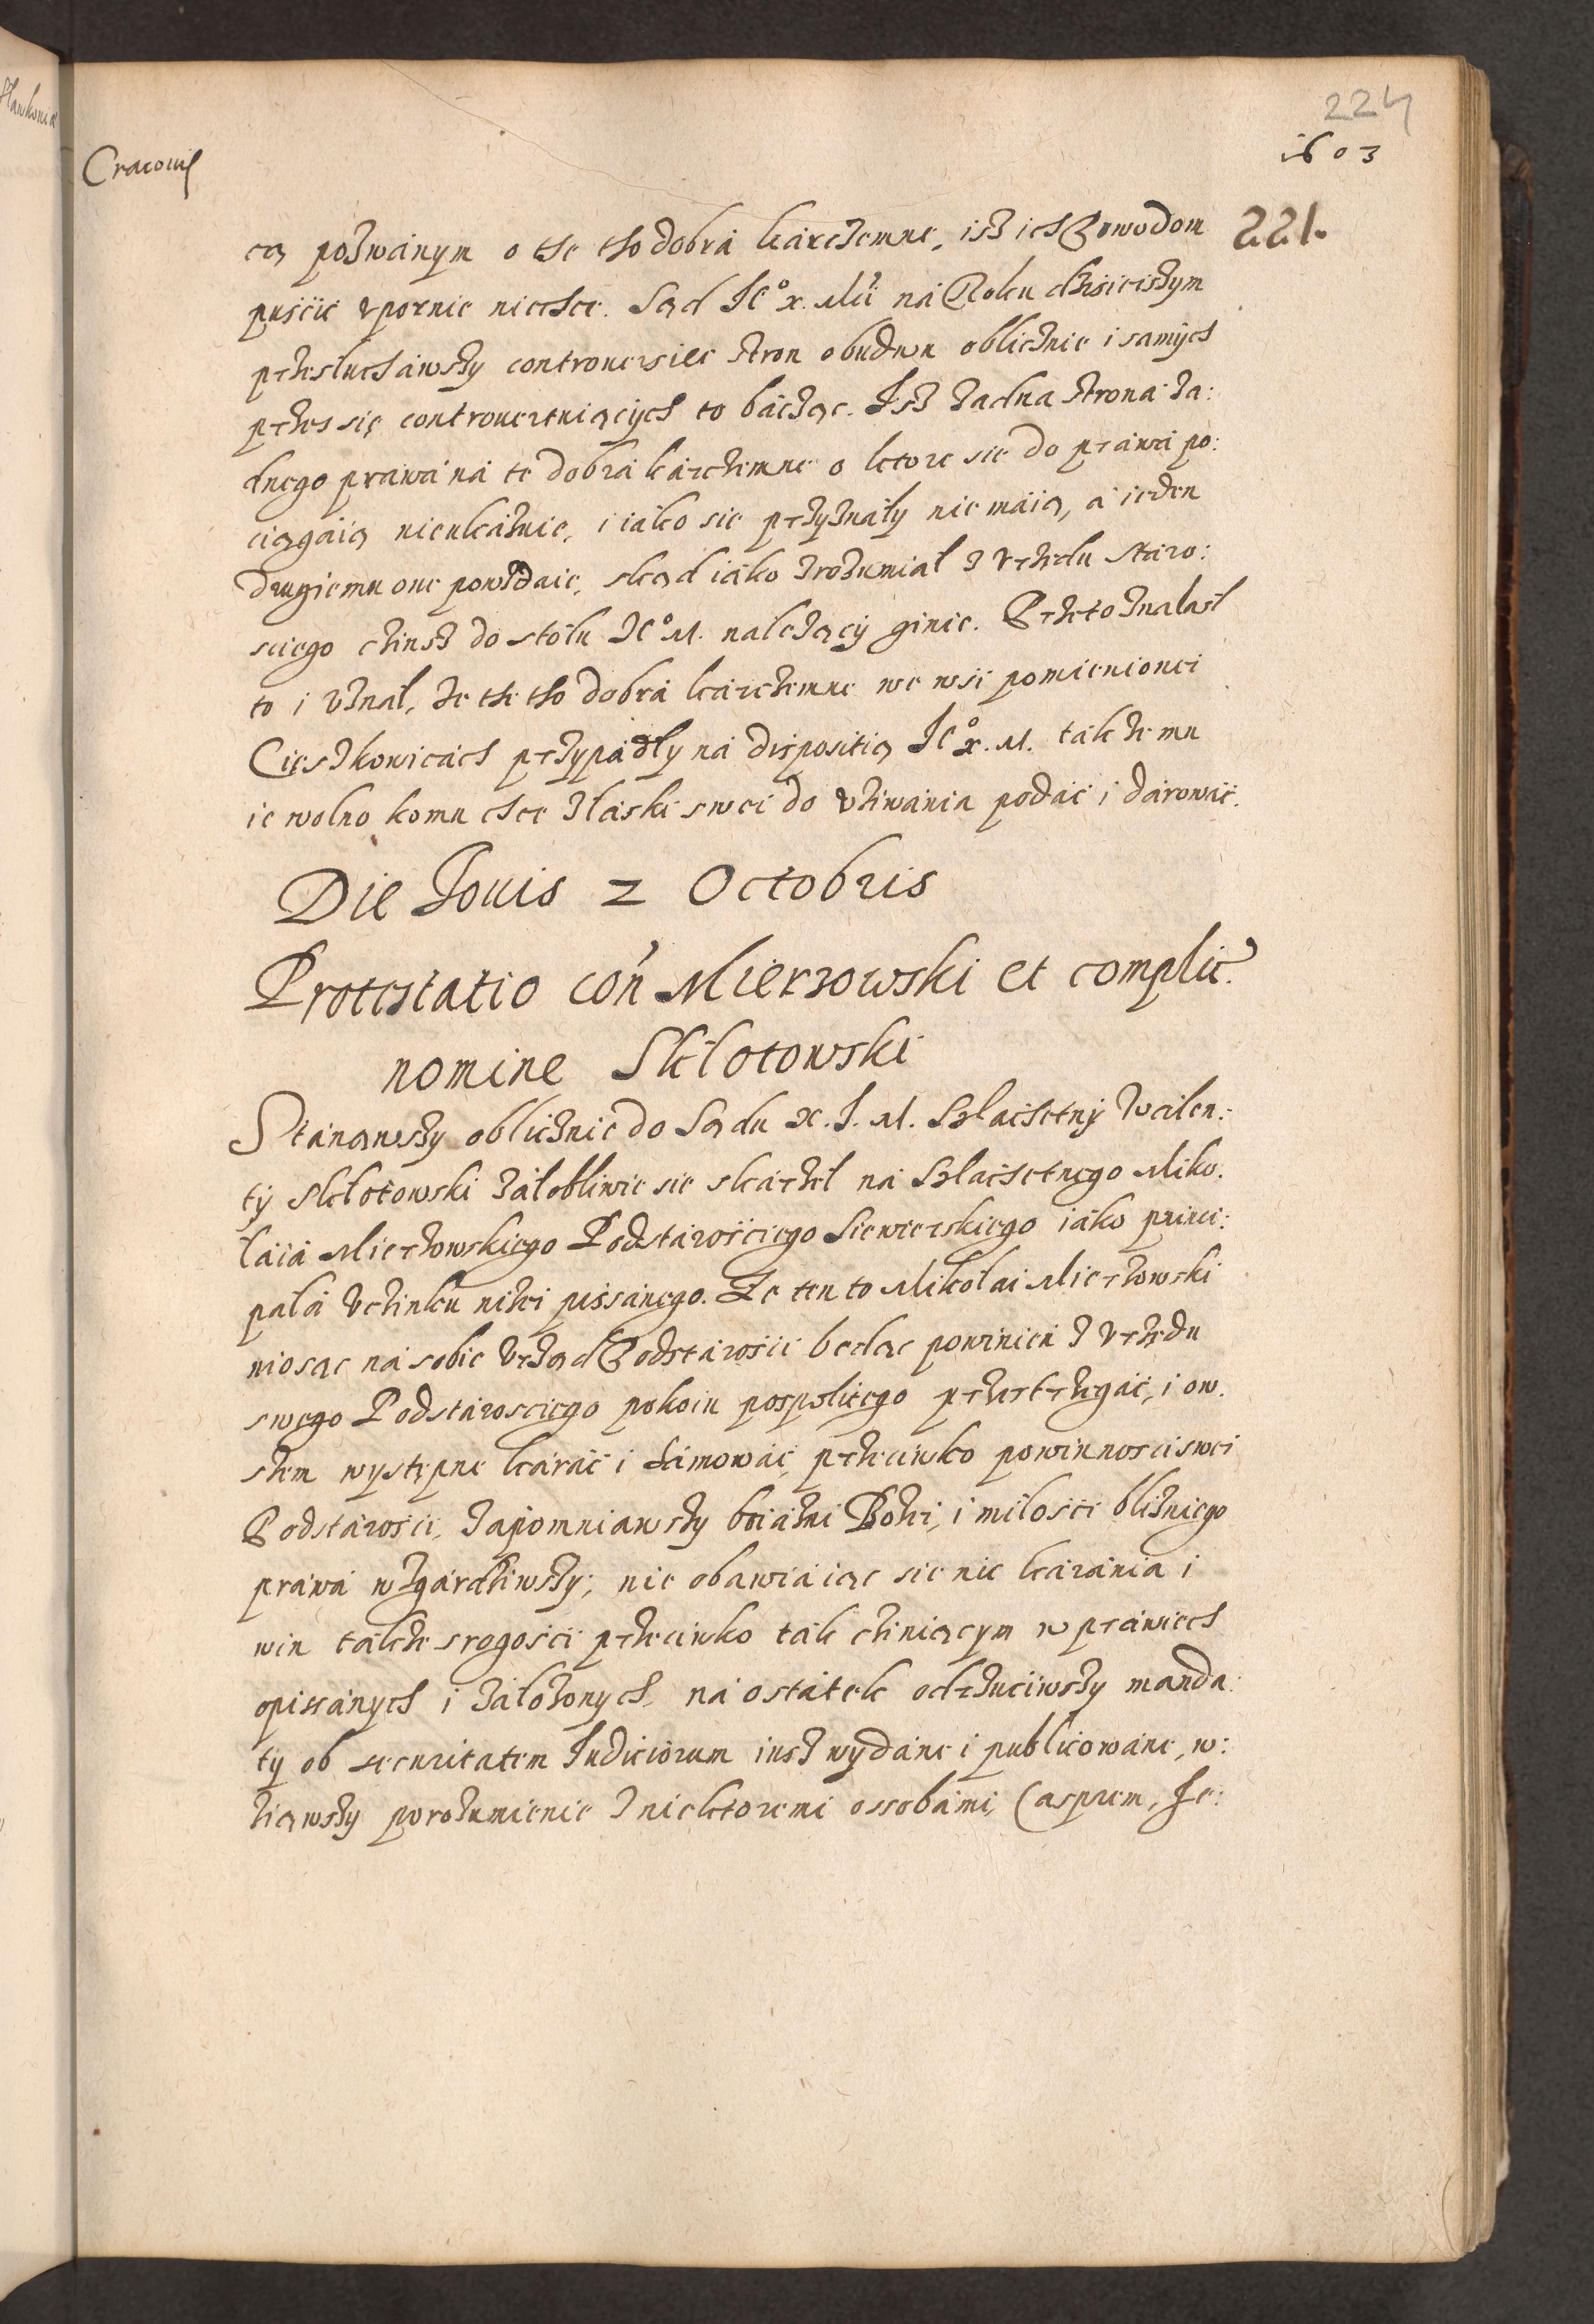 224
Cracouię 1603
221.
cą pozwanym o the tho dobra karczemne, isz ich Powodom
puścić upornie niechce. Sąd Ieº x. Mci na Roku dzisieiszym
przesłuchawszy controuersiec stron obudwu oblicznie i samych
przes się controuertuiących to bacząc. Isz zadna strona za:
dnego prawa na te dobra karczemne o ktore sie do prawa po:
ciągaią nieukaznie, i iako sie przyznały nie maią, a ieden
drugiemu one powzdaie, skąd iako zrozumiał z Urzedu Staro:
sciego czinsz do stołu Ieº M. nalezący ginie. Przeto znalasł
to i uznał, ze the tho dobra karczemne we wsi pomienionei
Cięszkowicach przypadły na dispositią Ieº x. M. takze mu
ie wolno komu chce z łaski swei do uziwania podać i darować.
Die Iouis 2 Octobris
Protestatio con Mierzowski et complic.
nomine Skłotowski
Stanąwszy oblicznie do Sądu X. I. M. Szlachetny Walen:
ty Skłotowski załobliwie sie skarzel na Szlachetnego Miko:
łaia Mierzowskiego Podstarościego Siewierskiego iako princi:
pala Uczinku nizei pissanego. Ze ten to Mikołai Mierzowski
niosąc na sobie Urząd Podstarości bedąc powinien z Urzedu
swego Podstarosciego pokoiu pospolitego przestrzegać, i ow.
szem występne karać i hamować, przeciwko powinnosci swei
Podstarości, zapomniawszy boiazni Bozei, i miłości blizniego
prawa wzgardziwszy; nie obawiaiąc sie nic karania i
win takze srogości przeciwko tak cziniącym w prawiech
opissanych i załozonych, na ostatek odrzuciwszy manda:
ty ob securitatem Iudiciorum iusz wydane i publicowane, w:
ziąwszy porozumienie z niektoremi ossobami, Casprem, Ie: